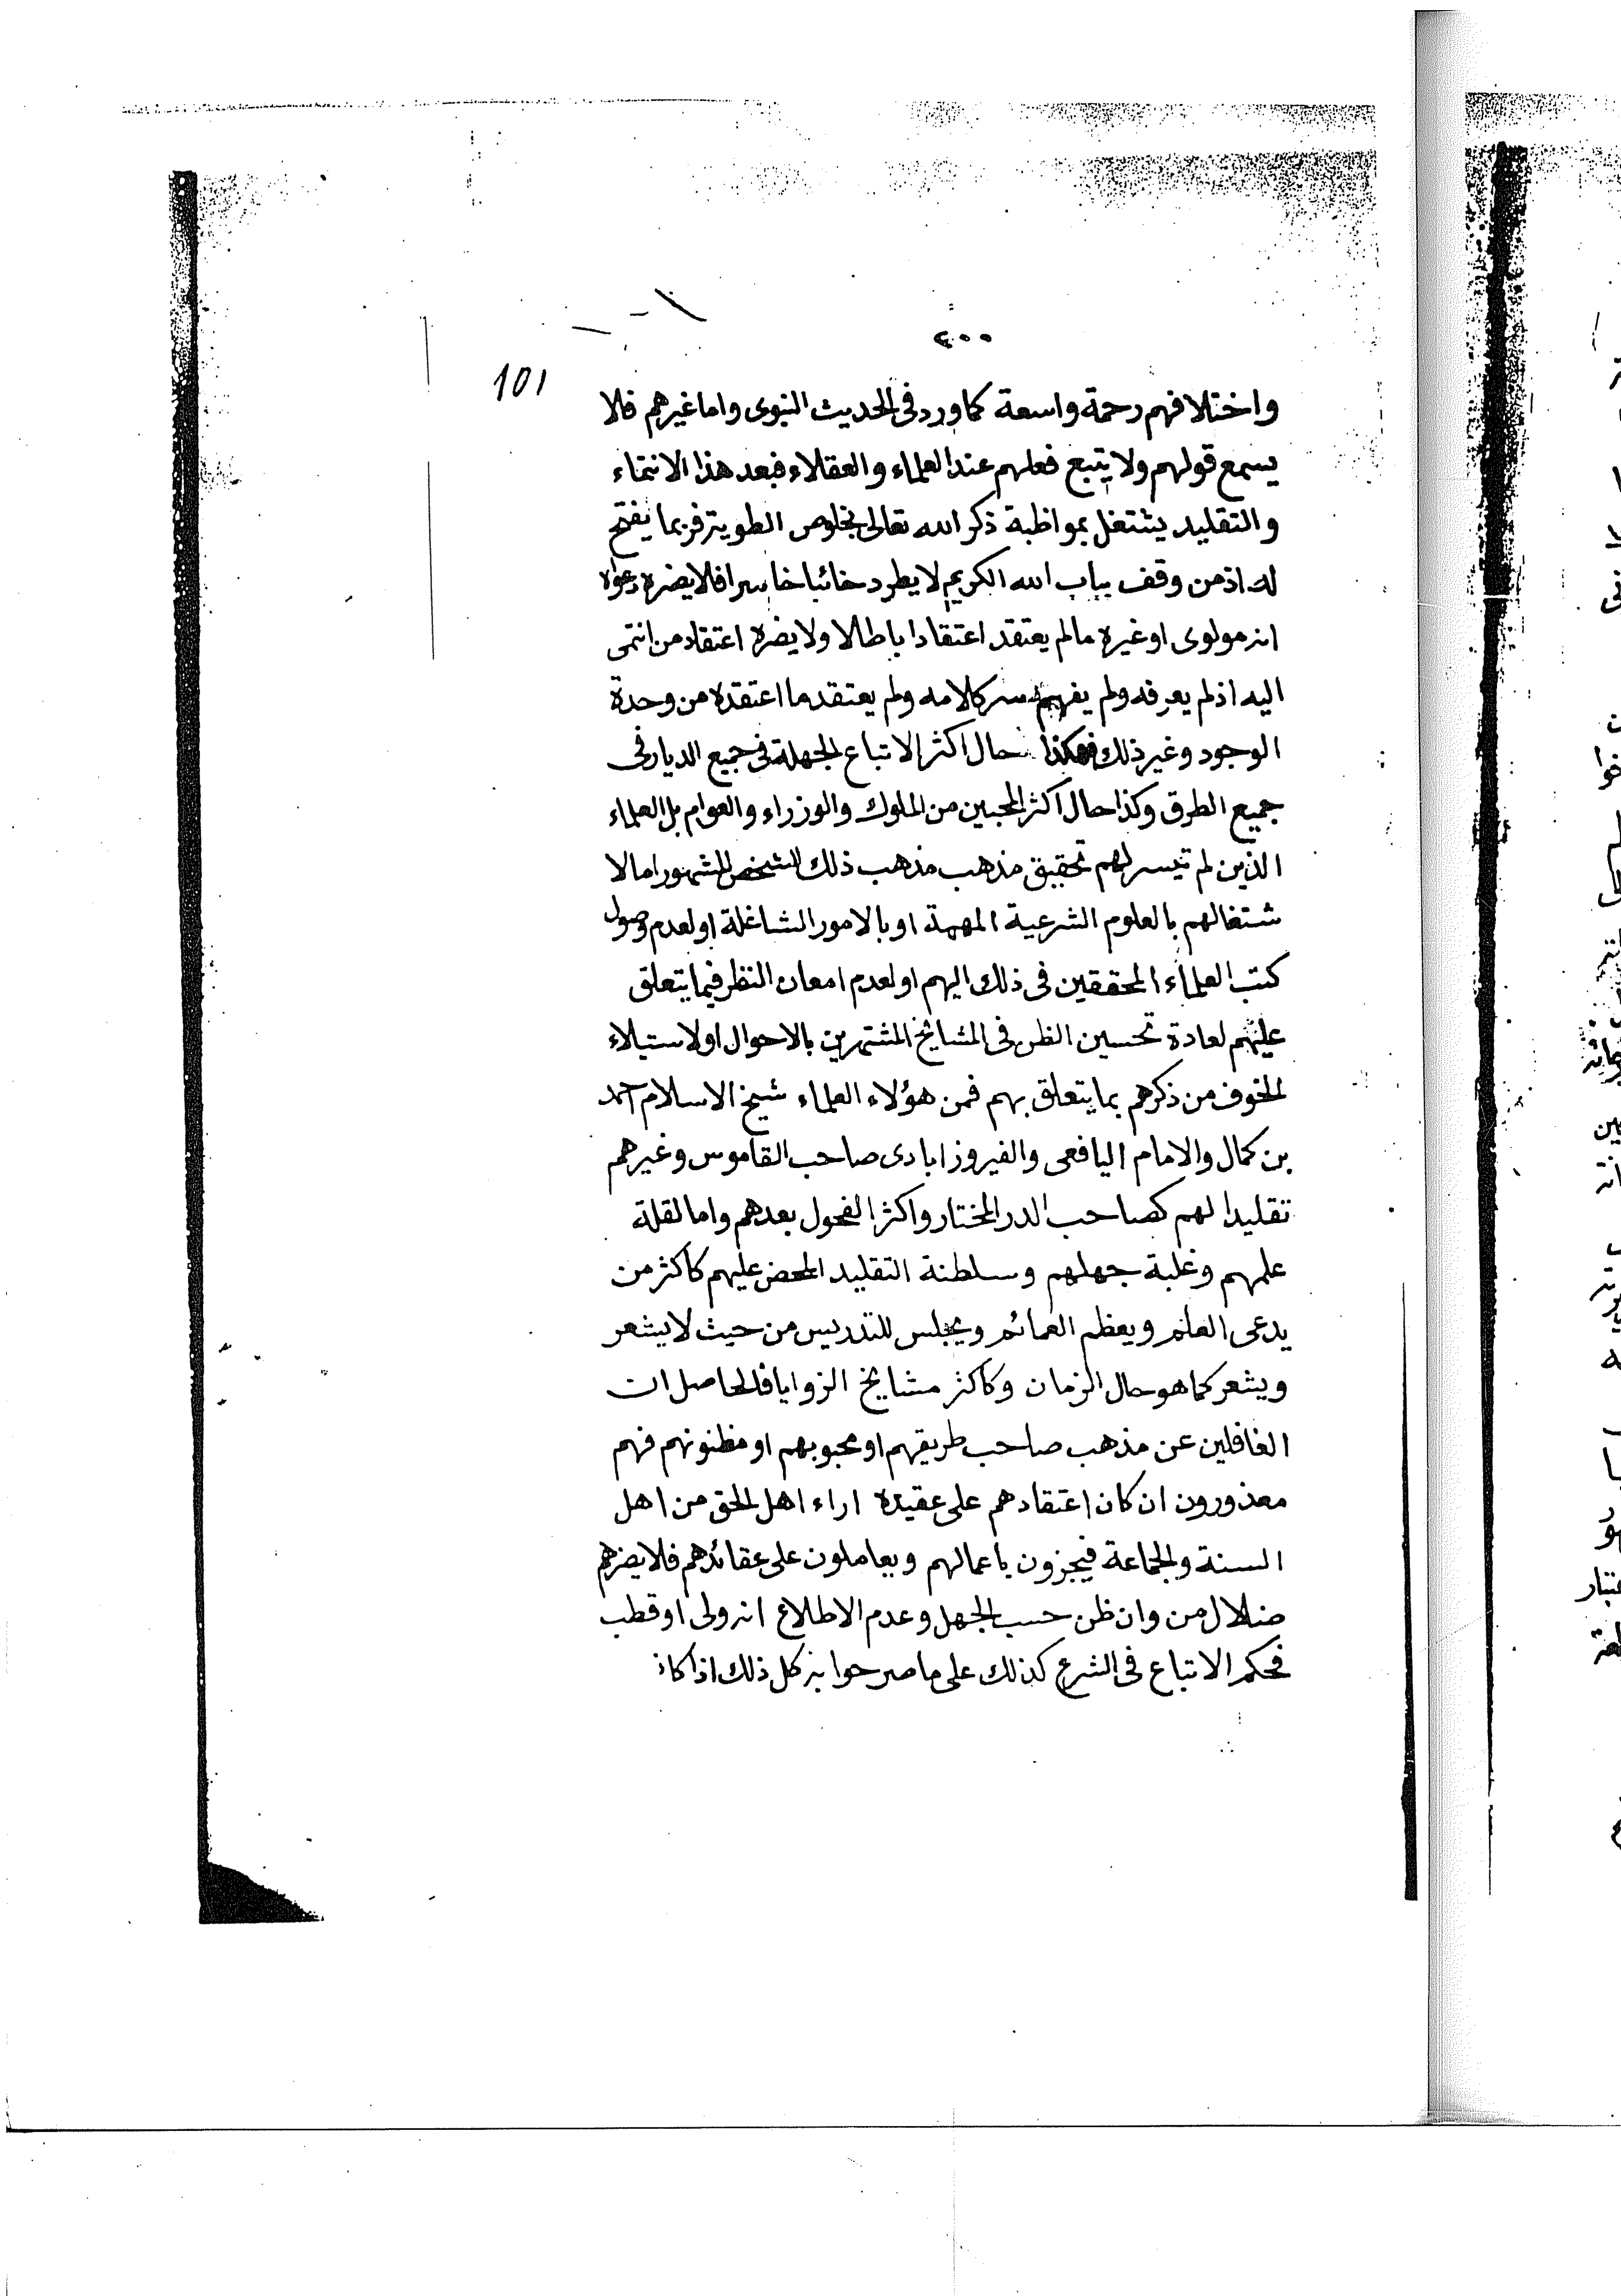 ٤٠٠
101
واختلافهم رحمة واسعة كما ورد فى الحديث النبوى واما غيرهم فلا
يسمع قولهم ولا يتبع فعلهم عند العلماء والعقلاء فبعد هذا الانتماء
والتقليد يشتغل بمواظبة ذكر الله تعالى بخلوص الطوية فربما يفتح
له اذ من وقف بباب الله الكريم لا يطرد خائبا خاسرا فلا يضره دعواه
انه مولوى او غيره مالم يعتقد اعتقادا باطلا ولا يضره اعتقاد من انتمى
اليه اذ لم يعرفه ولم يفهم سر كلامه ولم يعتقد ما اعتقده من وحدة
الوجود وغير ذلك فهكذا حال اكثر الاتباع الجهلة فى جميع الديار فى
جميع الطرق وكذا حال اكثر المحبين من الملوك والوزراء والعوام بل العلماء
الذين لم تيسر لهم تحقيق مذهب مذهب ذلك الشخص المشهور اما لا
شتغالهم بالعلوم الشرعية المهمة او بالامور الشاغلة او لعدم وصول
كتب العلماء المحققين فى ذلك اليهم او لعدم امعان النظر فيما يتعلق
عليهم لعادة تحسين الظن فى المشايخ المشتهرين بالاحوال او لاستيلاء
الخوف من ذكرهم بما يتعلق بهم فمن هؤلاء العلماء شيخ الاسلام احمد
بن كمال والامام اليافعى والفيروزابادى صاحب القاموس وغيرهم
تقليدا لهم كصاحب الدر المختار واكثر الفحول بعدهم واما لقلة
علمهم وغلبة جهلهم وسلطنة التقليد المحض عليهم كاكثر من
يدعى العلم ويعظم العمائم ويجلس للتدريس من حيث لا يشعر
ويشعر كما هو حال الزمان وكاكثر مشايخ الزوايا فالحاصل ان
الغافلين عن مذهب صاحب طريقهم او محبوبهم او مظنونهم فهم
معذورون ان كان اعتقادهم على عقيدة اراء اهل الحق من اهل
السنة والجماعة فيجزون باعمالهم ويعاملون على عقائدهم فلا يضرهم
ضلال من وان ظن حسب الجهل وعدم الاطلاع انه ولى او قطب
فحكم الاتباع فى الشرع كذلك على ما صرحوا به كل ذلك اذا كان